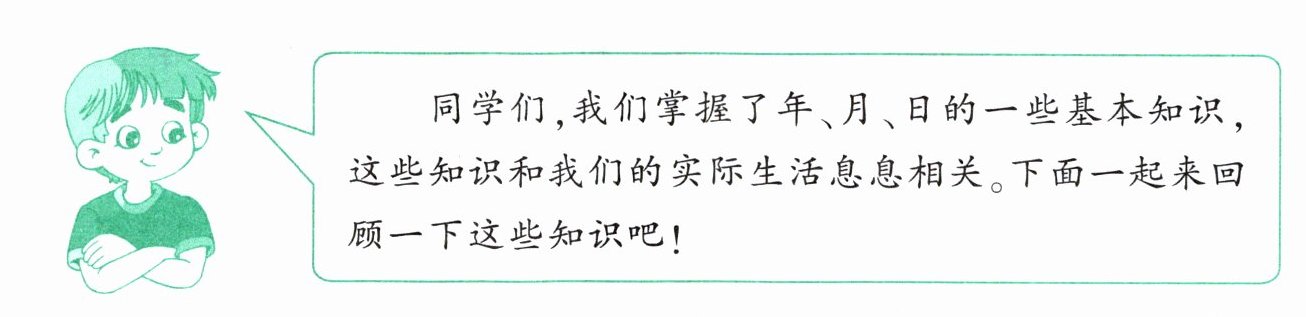 同学们,我们掌握了年、月、日的一些基本知识,
这些知识和我们的实际生活息息相关。下面一起来回
顾一下这些知识吧!